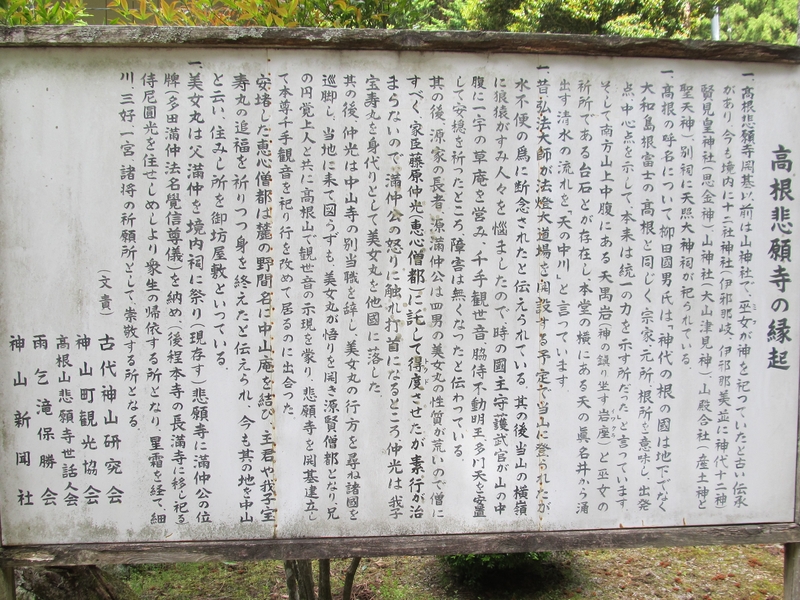 高根悲願寺の縁起
一、高根悲願寺開基以前は山神社で、巫女が神を祀っていたと古い伝承
があり、今も境内に十二社神社(伊邪那岐、伊邪那美並に神代十二神)
賢見皇神社(思金神)、山神社(大山津見神)、山殿合社(産土神と
聖天神)、別祠に天照大神祠が祀られている。
一、高根の呼名について柳田國男氏は「神代の根の國は地下でなく
大和島根富士の高根と同じく宗家、元所、根所を意味し出発
点、中心点を示して、本来は統一の力を示す所だったと言っています。
そして南方山上中腹にある天岩(神の鎮り坐す岩座)と巫女の
祈所である台石とが存在し本堂の横にある天の眞名井から涌
出す清水の流れを「天の中川」と言っています。
一、昔弘法大師が法燈大道場を開設する予定で当山に登られたが
水不便の為に断念されたと伝えられている。其の後当山の横嶺
に狼猿がすみ人々を惱ましたので、時の國主守護武官が山の中
腹に一宇の草庵を営み、千手観世音、脇侍不動明王、多門天を安置
して安穏を祈ったところ、障害は無くなったと伝わっている。
其の後、源家の長者、源満仲公は四男の美女丸の性質が荒いので僧に
すべく、家臣藤原仲光、恵心僧都)に託して得度させたが素行が治
まらないので、満仲公の怒りに触れ打首になるところ仲光は我子
宝寿丸を身代りとして美女丸を他國に落した。
其の後、仲光は中山寺の別当職を辞し、美女丸の行方を尋ね諸國を
巡脚し、当地に来て図うずも、美女丸が悟りを開き源賢僧都となり、兄
の円覚上人と共に高根山で観世音の示現を蒙り、悲願寺を開基建立し
て本尊千手観音を祀り行を改めて居るのに出合った。
安堵した恵心僧都は麓の野間名に中山庵を結び、主君や我子宝
寿丸の追福を祈りつつ身を終えたと伝えられ、今も其の地を中山
と云い、住みし所を御坊屋敷といっている。
一、美女丸は父満仲を境内祠に祭り(現存す)悲願寺に満仲公の位
牌(多田満仲法名覺信尊儀)を納め(後程本寺の長満寺に移し祀る)
侍尼圓光を住せしめしより衆生の帰依する所となり、星霜を経て細
川、三好、一宮諸将の祈願所として、崇敬する所となる。
(文責)古代神山研究会
神山町観光協会
高根山悲願寺世話人会
雨乞滝保勝会
神山新聞社